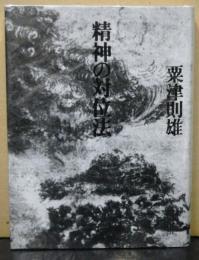 精神の対位法
粟津則雄